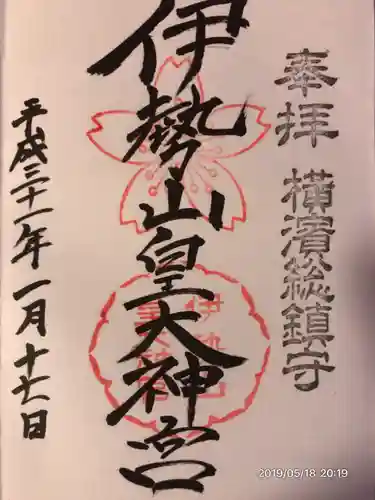 奉拝 横濱総鎮守
伊勢山皇大神宮
平成三十一年一月十七日
2019/05/18 20:19